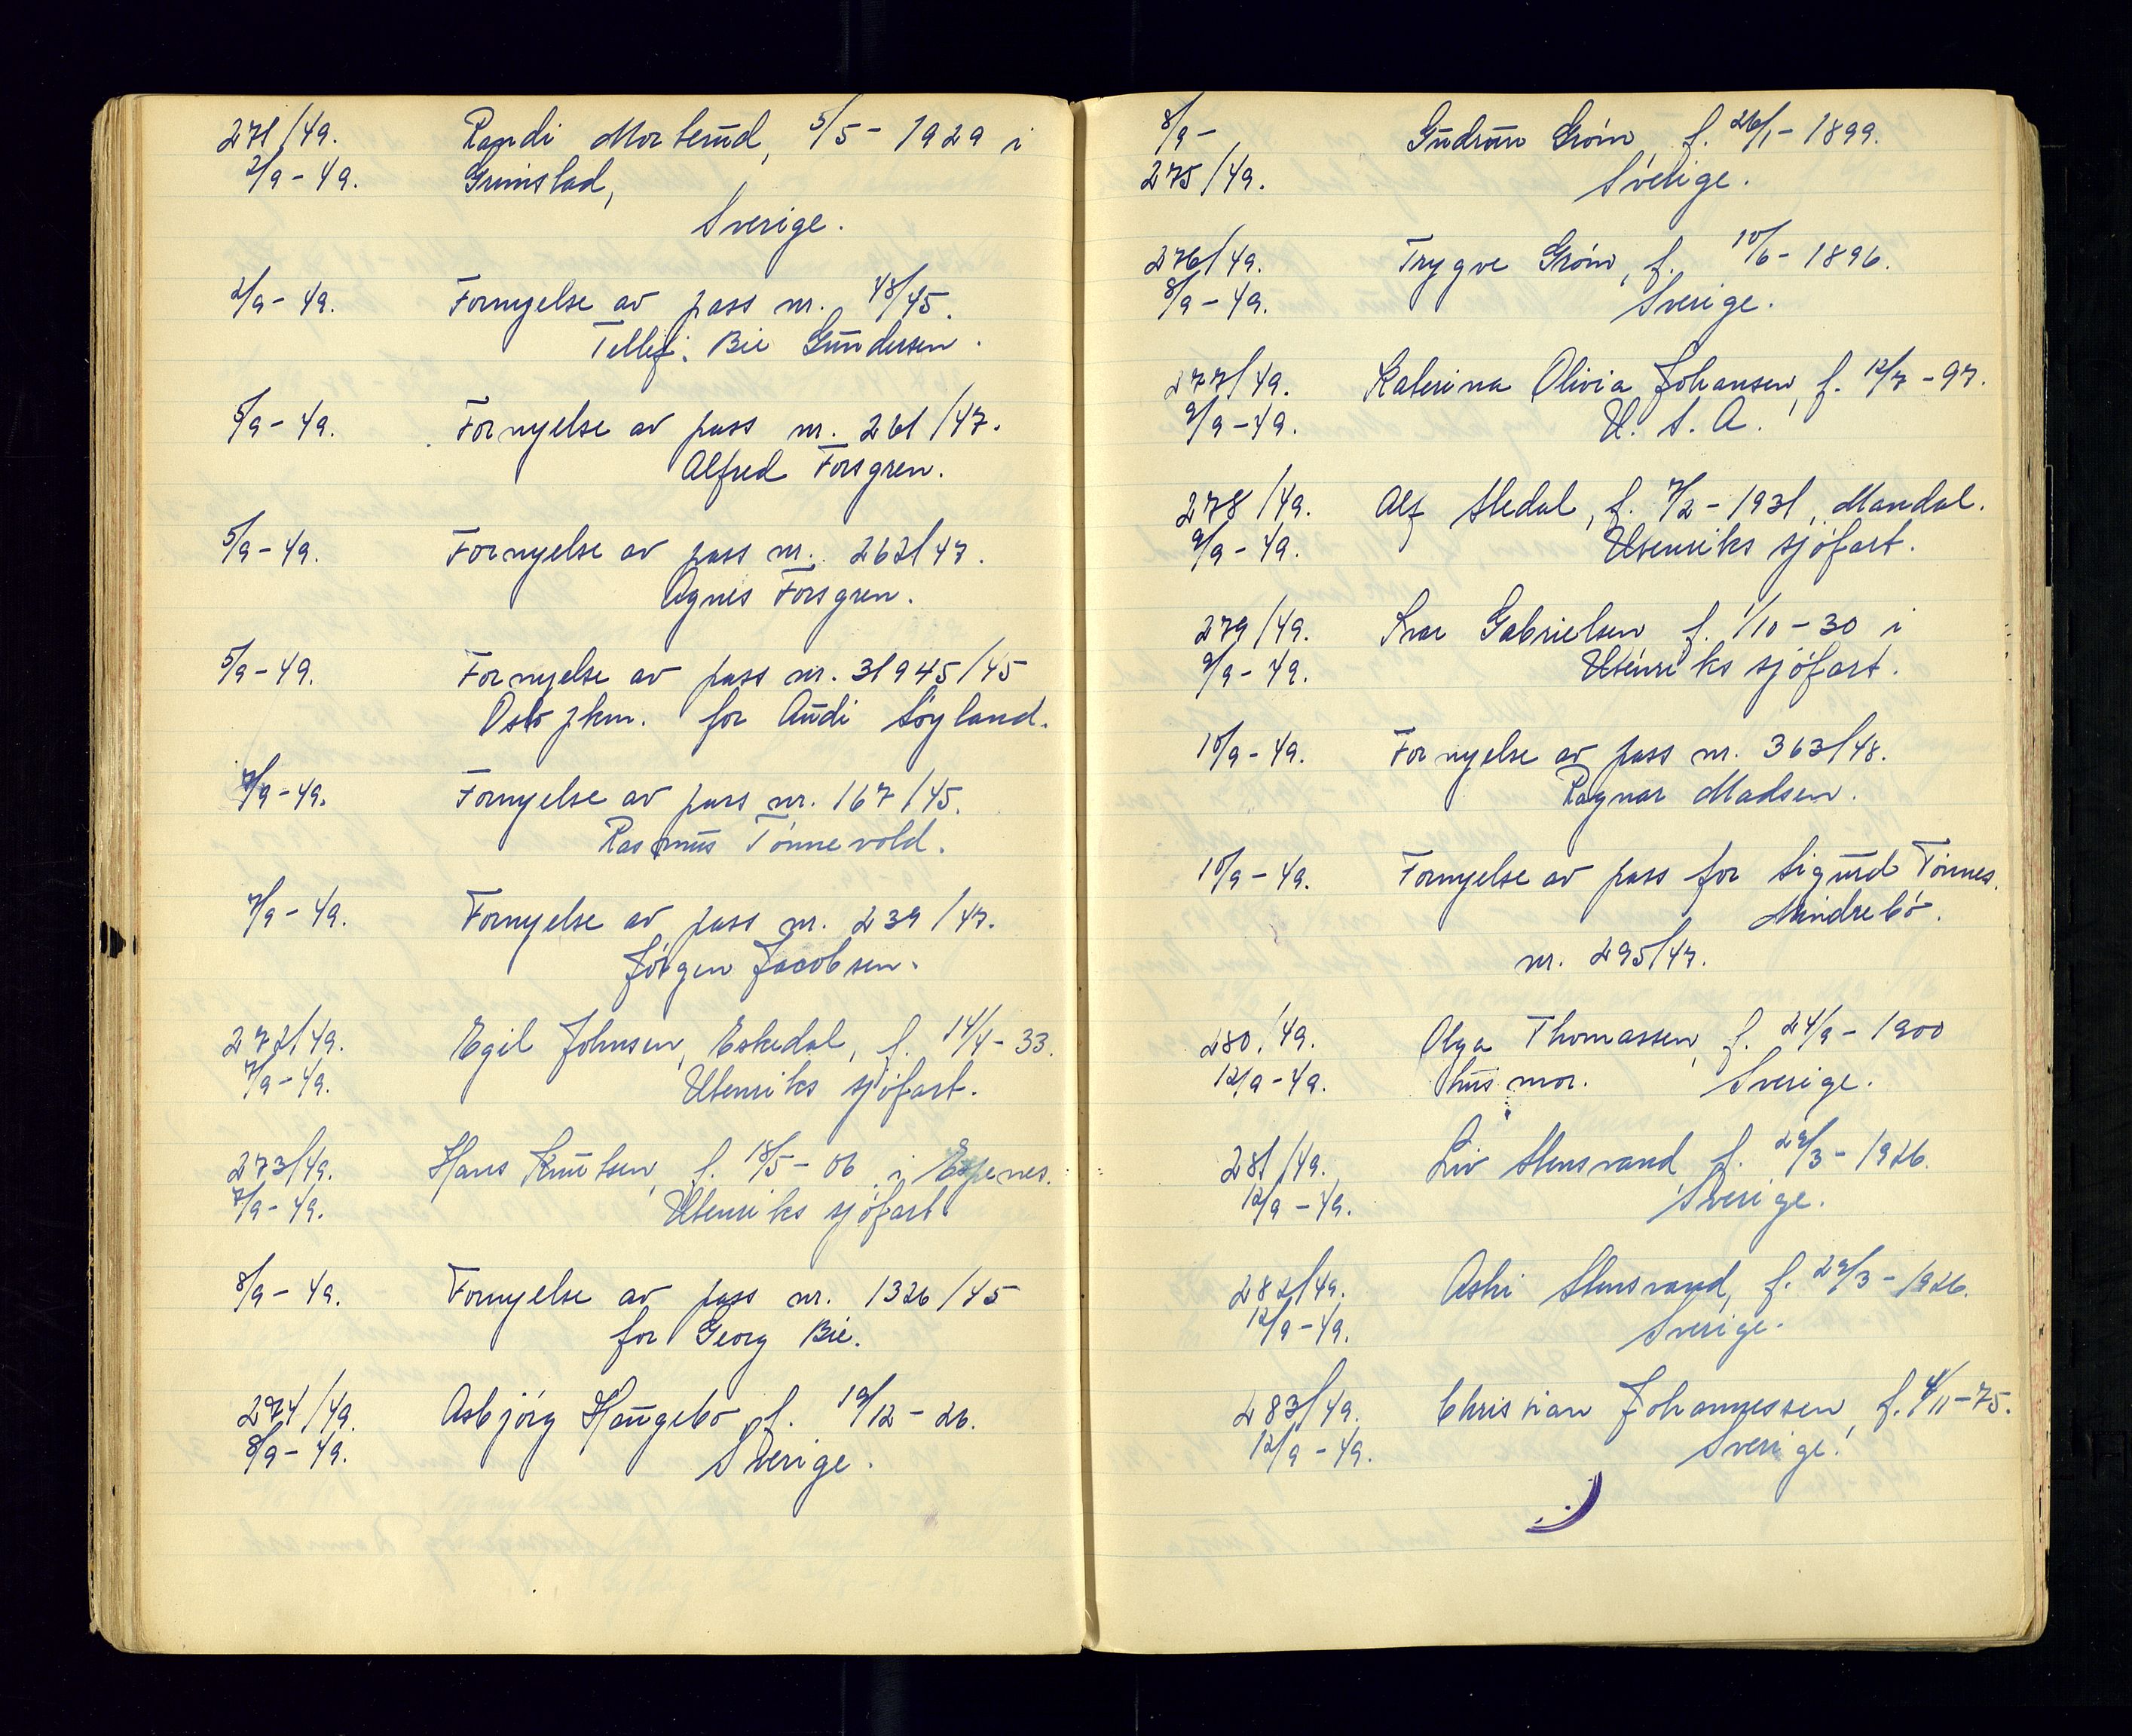 271/49. Randi Morterud, 5/5 - 1929 i
2/9 - 49. Grimstad,
Sverige.
2/9 - 49. Fornyelse av pass nr. 48/45.
Tellef. Bie Gundersen.
5/9 - 49. Fornyelse av pass nr. 261/47.
Alfred Forsgren.
5/9 - 49. Fornyelse av pass nr. 262/47.
Agnes Forsgren.
5/9 - 49. Fornyelse av pass nr. 31945/45
Oslo pkm. for Audi Søyland.
7/9 - 49. Fornyelse av pass nr. 167/45.
Rasmus Tønnevold.
7/9 - 49. Fornyelse av pass nr. 239/47.
Jørgen Jacobsen.
272/49. Egil Johnsen, Eskedal, f. 14/4 - 33.
7/9 - 49. Utenriks sjøfart.
273/49. Hans Knutsen, f. 18/5 - 06 i Espenes.
7/9 - 49. Utenriks sjøfart.
8/9 - 49. Fornyelse av pass nr. 1326/45
for Georg Bie.
274/49. Asbjørg Haugebo f. 19/12 - 26.
8/9 - 49. Sverige.
8/9 - Gudrun Grøm, f. 26/1 - 1899.
275/49. Sverige.
276/49. Trygve Grøm, f. 10/6 - 1896.
8/9 - 49. Sverige.
277/49. Katerina Olivia Johansen, f. 12/7 - 97.
9/9 - 49. U. S. A.
278/49. Alf Stedal, f. 7/2 - 1931, Mandal.
9/9 - 49. Utenriks sjøfart.
279/49. Ivar Gabrielsen f. 1/10 - 30 i
9/9 - 49. Utenriks sjøfart.
10/9 - 49. Fornyelse av pass nr. 363/48.
Ragnar Madsen.
10/9 - 49. Fornyelse av pass for Sigurd Tønnes.
Mindrebø.
nr. 295/47.
280/49. Olga Thomassen, f. 24/9 - 1900
12/9 - 49. husmor. Sverige.
281/49. Liv Stensrand f. 29/3 - 1926.
12/9 - 49. Sverige.
282/49. Astri Stensrand, f. 29/3 - 1926.
12/9 - 49. Sverige.
283/49. Christian Johannessen, f. 4/11 - 75.
12/9 - 49. Sverige.